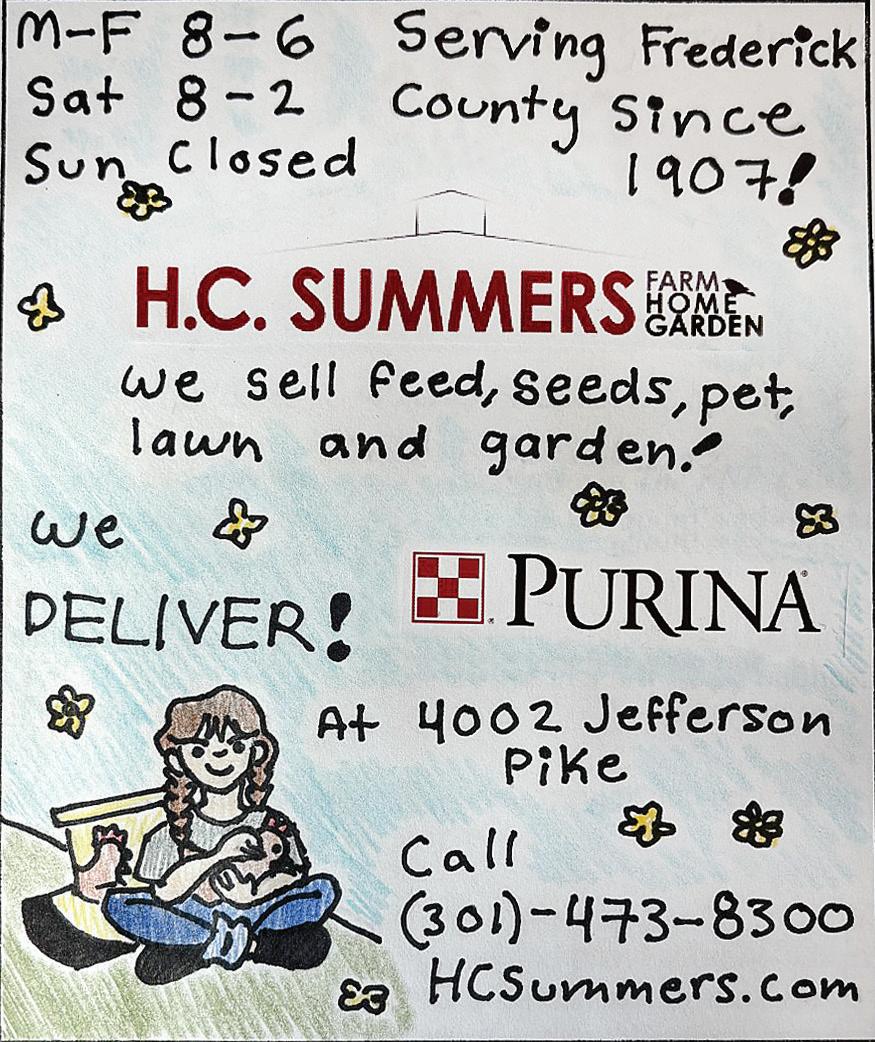 M-F 8-6
Sat 8-2
Sun Closed
Serving Frederick
County Since
1907!
H.C. SUMMERS
FARM
HOME
GARDEN
We sell feed, seeds, pet,
lawn and garden!
We
DELIVER!
PURINA
At 4002 Jefferson
Pike
Call
(301)-473-8300
HCSummers.com